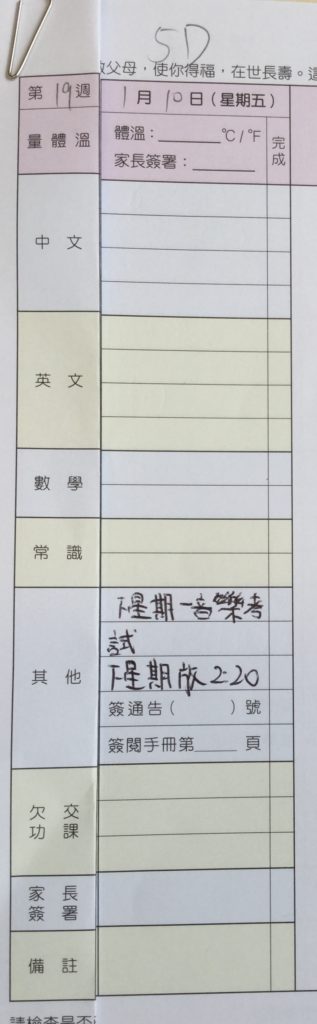 5D
敬父母，使你得福，在世長壽。這
第19週
1月10日(星期五)
量體溫
體溫：______°C/°F
家長簽署：______
完成
中文
英文
數學
常識
其他
下星期一音樂考
試
下星期放2:20
簽通告( )號
簽閱手冊第____頁
欠交
功課
家長
簽署
備註